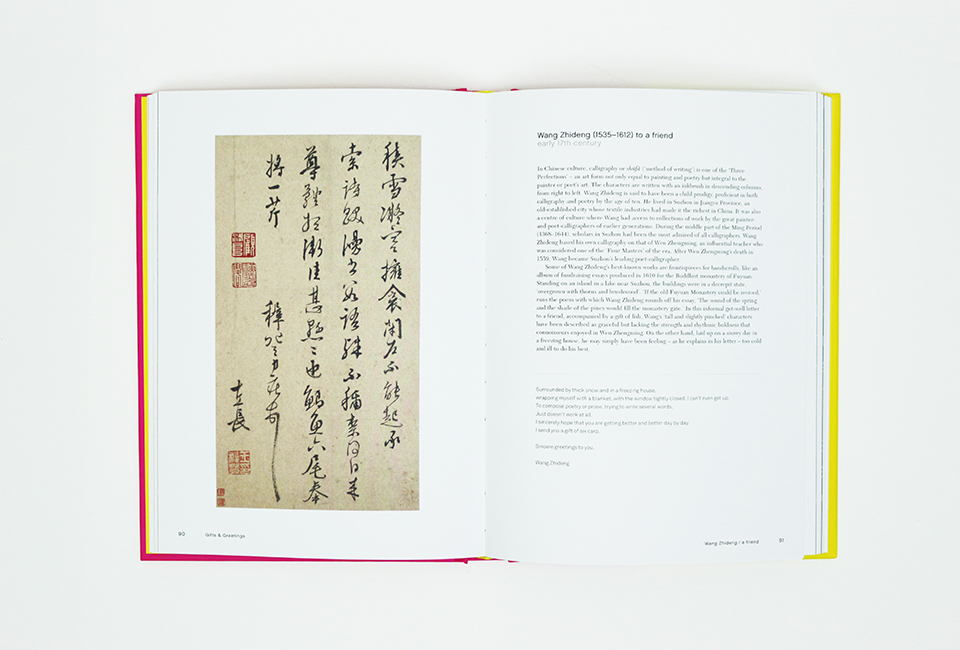 積雪凝寒擁衾閉戶不能起承
索詩跋漫書語殊不稱柰何日來
尊體想漸佳甚也魚六尾奉
將一芹
穉登
左長
90
Gifts & Greetings
Wang Zhideng (1535–1612) to a friend
early 17th century
In Chinese culture, calligraphy or shūfǎ ('method of writing') is one of the 'Three
Perfections' – an art form not only equal to painting and poetry but integral to the
painter or poet's art. The characters are written with an inkbrush in descending columns
from right to left. Wang Zhideng is said to have been a child prodigy, proficient in both
calligraphy and poetry by the age of ten. He lived in Suzhou in Jiangsu Province, an
old-established city whose textile industries had made it the richest in China. It was also
a centre of culture where Wang had access to collections of work by the great painter-
and poet-calligraphers of earlier generations. During the middle part of the Ming Period
(1368–1644), scholars in Suzhou had been the most admired of all calligraphers. Wang
Zhideng based his own calligraphy on that of Wen Zhengming, an influential teacher who
was considered one of the 'Four Masters' of the era. After Wen Zhengming's death in
1559, Wang became Suzhou's leading poet-calligrapher.
Some of Wang Zhideng's best-known works are frontispieces for handscrolls, like an
album of fundraising essays produced in 1610 for the Buddhist monastery of Fuyuan.
Standing on an island in a lake near Suzhou, the buildings were in a decrepit state,
'overgrown with thorns and brushwood'. 'If the old Fuyuan Monastery could be revived,'
runs the poem with which Wang Zhideng rounds off his essay, 'The sound of the spring
and the shade of the pines would fill the monastery gate.' In this informal get-well letter
to a friend, accompanied by a gift of fish, Wang's 'tall and slightly pinched' characters
have been described as graceful but lacking the strength and rhythmic boldness that
connoisseurs enjoyed in Wen Zhengming. On the other hand, laid up on a snowy day in
a freezing house, he may simply have been feeling – as he explains in his letter – too cold
and ill to do his best.
Surrounded by thick snow and in a freezing house,
wrapping myself with a blanket, with the window tightly closed, I can't even get up.
To compose poetry or prose, trying to write several words,
Just doesn't work at all.
I sincerely hope that you are getting better and better day by day
I send you a gift of six carp.
Sincere greetings to you,
Wang Zhideng
Wang Zhideng / a friend
91